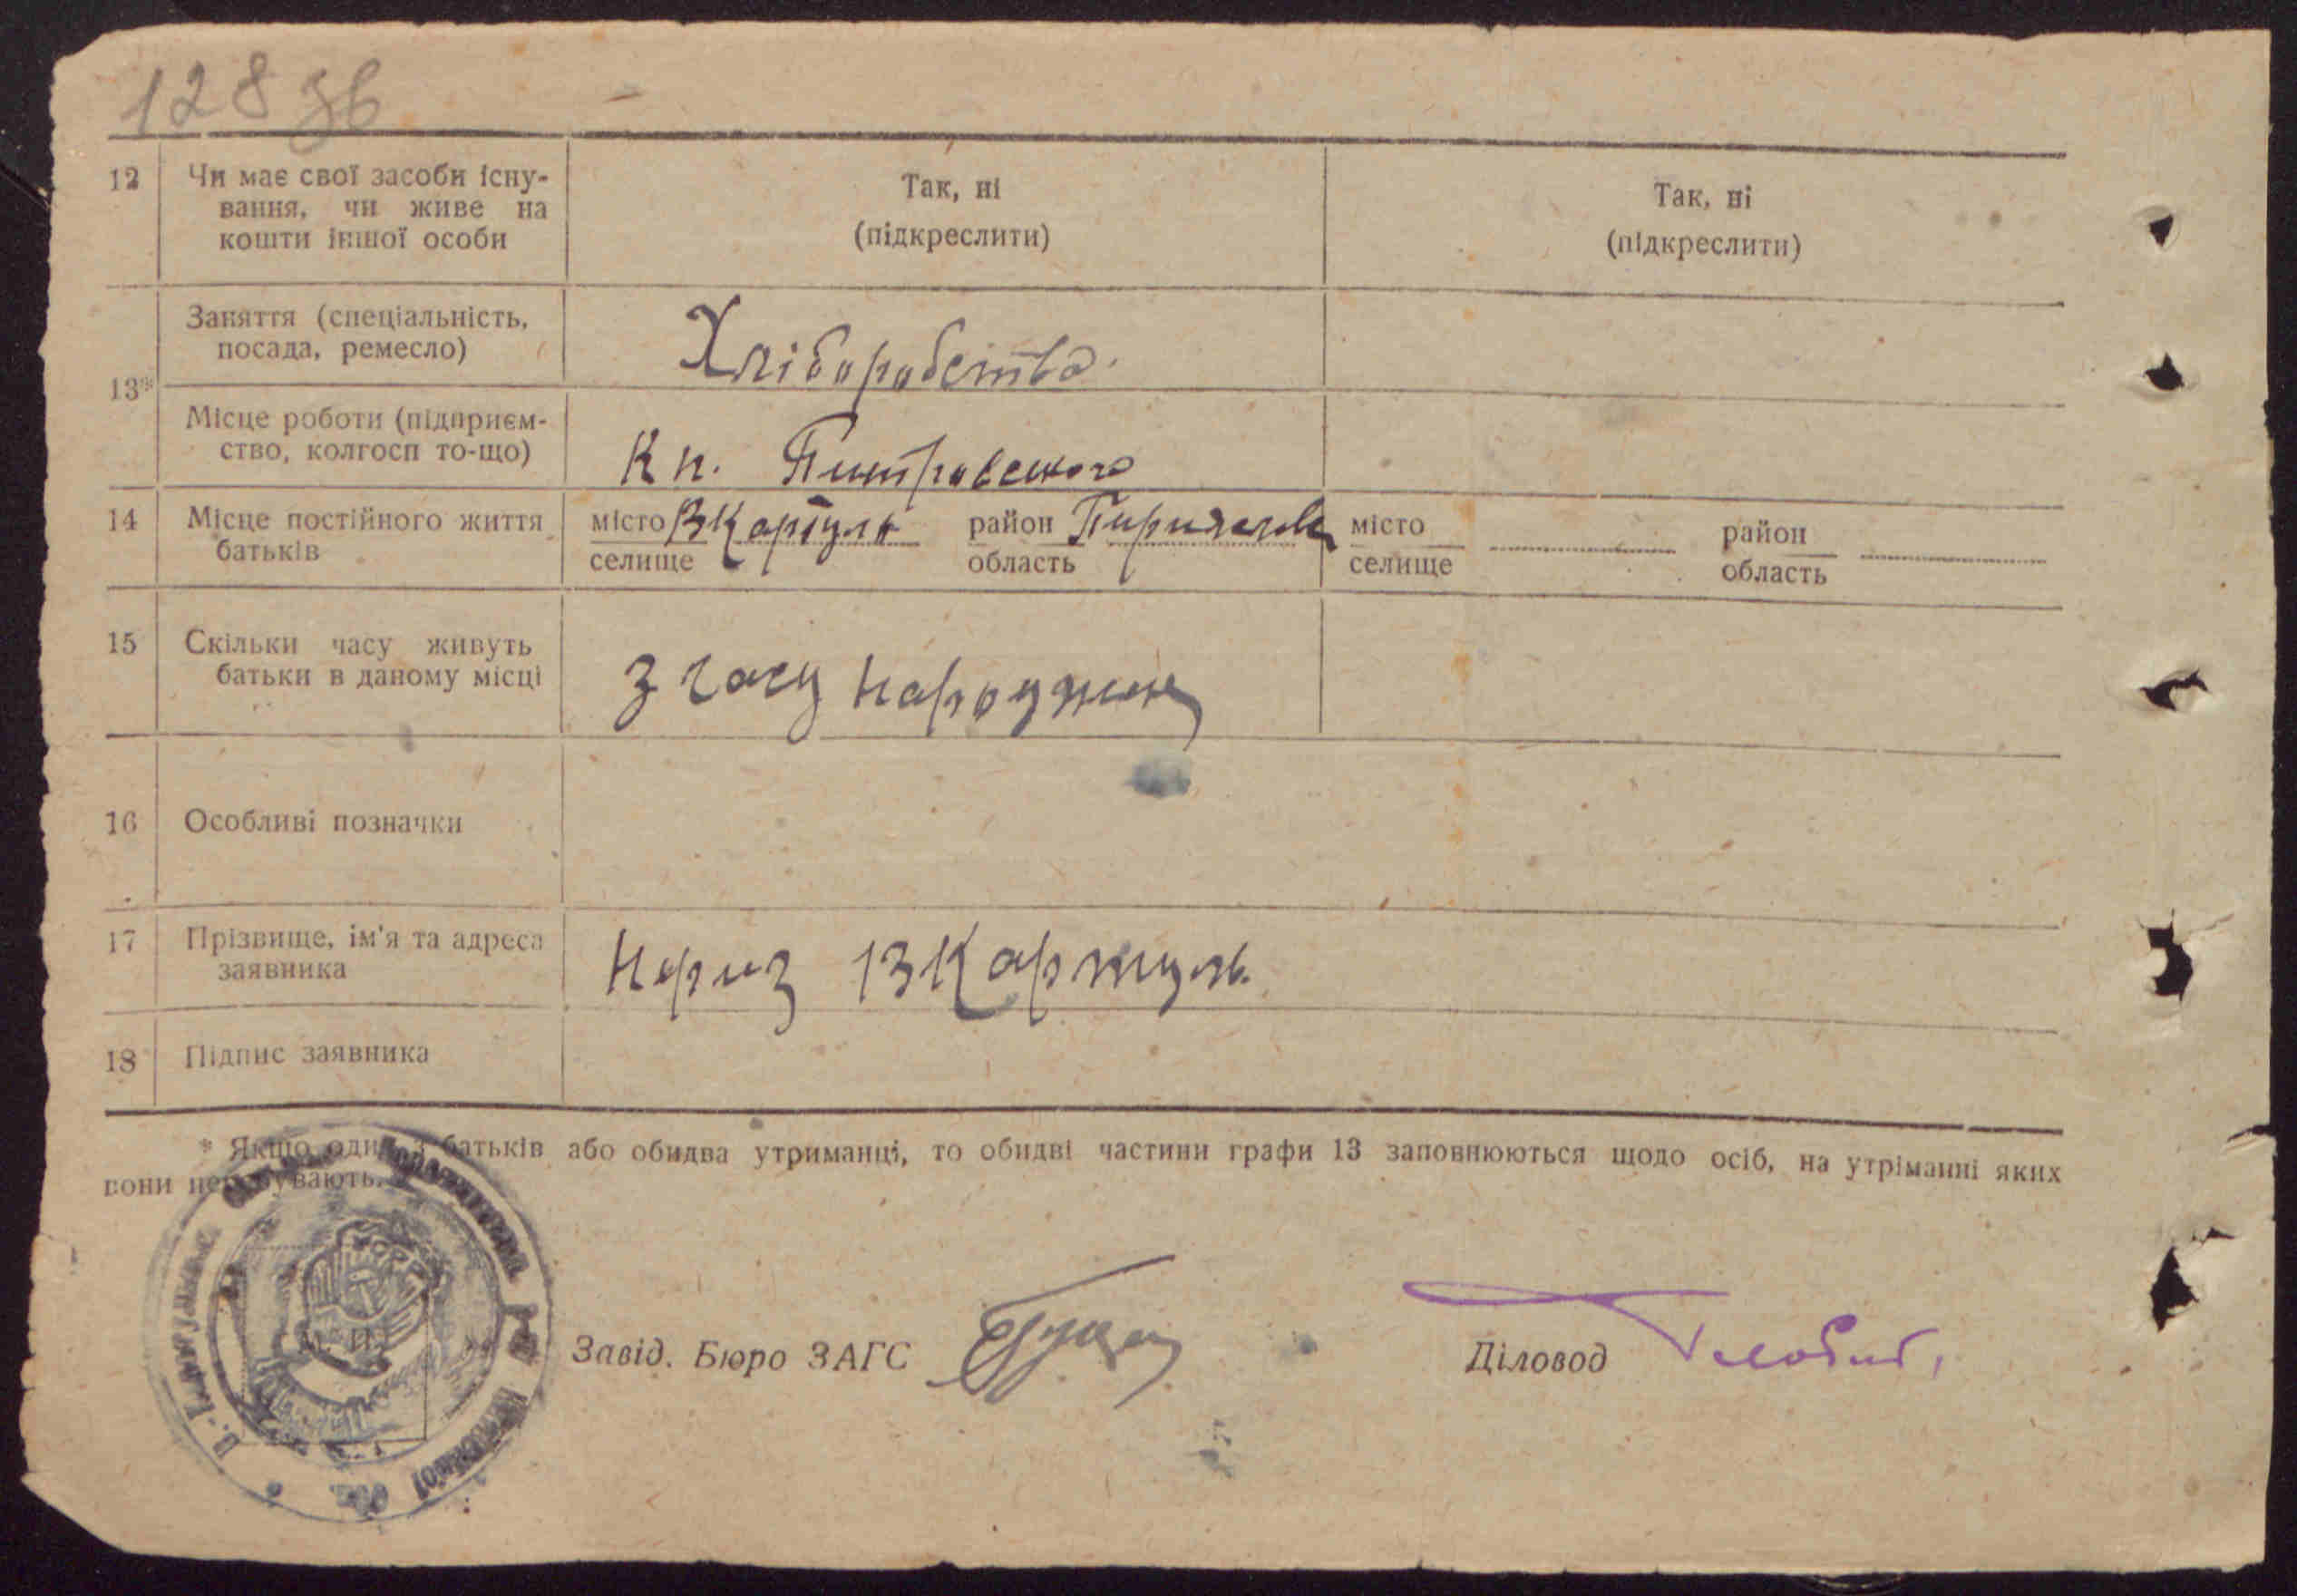 128 зв
12 Чи має свої засоби існу-
вання, чи живе на
кошти іншої особи
Так, ні
(підкреслити)
Так, ні
(підкреслити)
13* Заняття (спеціальність,
посада, ремесло)
Хліборобство.
Місце роботи (підприєм-
ство, колгосп то-що)
Кп. Питровського
14 Місце постійного життя
батьків
місто
селище
ВКаргуль
район
область
місто
селище
район
область
15 Скільки часу живуть
батьки в даному місці
З часу народження
16 Особливі позначки
17 Прізвище, ім'я та адреса
заявника
ВКаржуль
18 Підпис заявника
* Якщо один з батьків або обидва утриманці, то обидві частини графи 13 заповнюються щодо осіб, на утріманні яких
вони перебувають.
М. П.
Завід. Бюро ЗАГС
Діловод